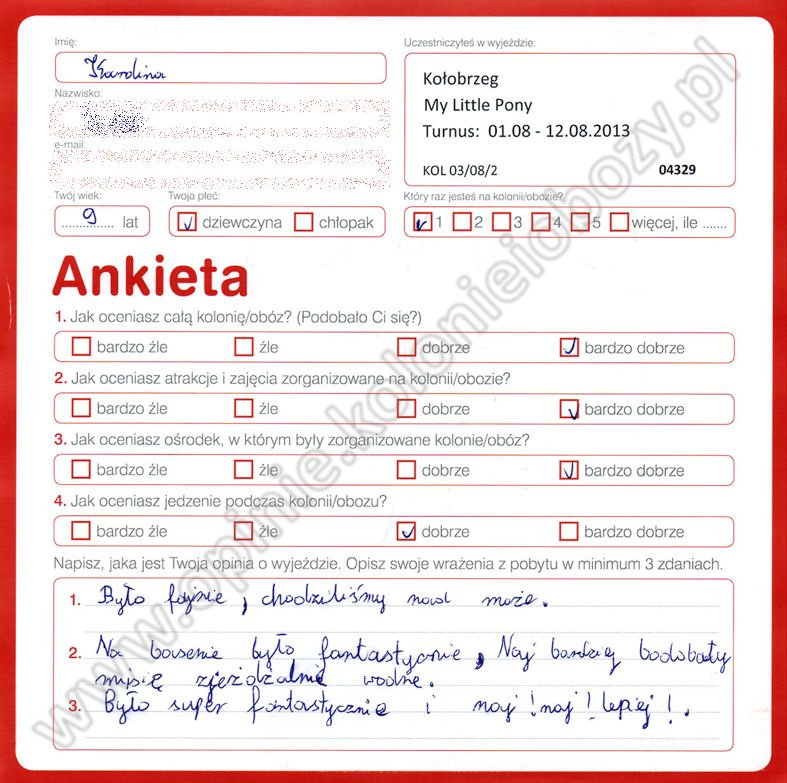 Imię:
Karolina
Nazwisko:
e-mail:
Twój wiek:
9 lat
Twoja płeć:
dziewczyna chłopak
Uczestniczyłeś w wyjeździe:
Kołobrzeg
My Little Pony
Turnus: 01.08 - 12.08.2013
KOL 03/08/2 04329
Który raz jesteś na kolonii/obozie?
1 2 3 4 5 więcej, ile .......
Ankieta
1. Jak oceniasz całą kolonię/obóz? (Podobało Ci się?)
bardzo źle źle dobrze bardzo dobrze
2. Jak oceniasz atrakcje i zajęcia zorganizowane na kolonii/obozie?
bardzo źle źle dobrze bardzo dobrze
3. Jak oceniasz ośrodek, w którym były zorganizowane kolonie/obóz?
bardzo źle źle dobrze bardzo dobrze
4. Jak oceniasz jedzenie podczas kolonii/obozu?
bardzo źle źle dobrze bardzo dobrze
Napisz, jaka jest Twoja opinia o wyjeździe. Opisz swoje wrażenia z pobytu w minimum 3 zdaniach.
1. Było fajnie, chodziliśmy nad może.
2. Na basenie było fantastycnie, Naj bardziej bodobały
misię zjeżdżalnie wodne.
3. Było super fantastycznie i naj! naj! lepiej!.
www.opinie.kolonieiobozy.pl